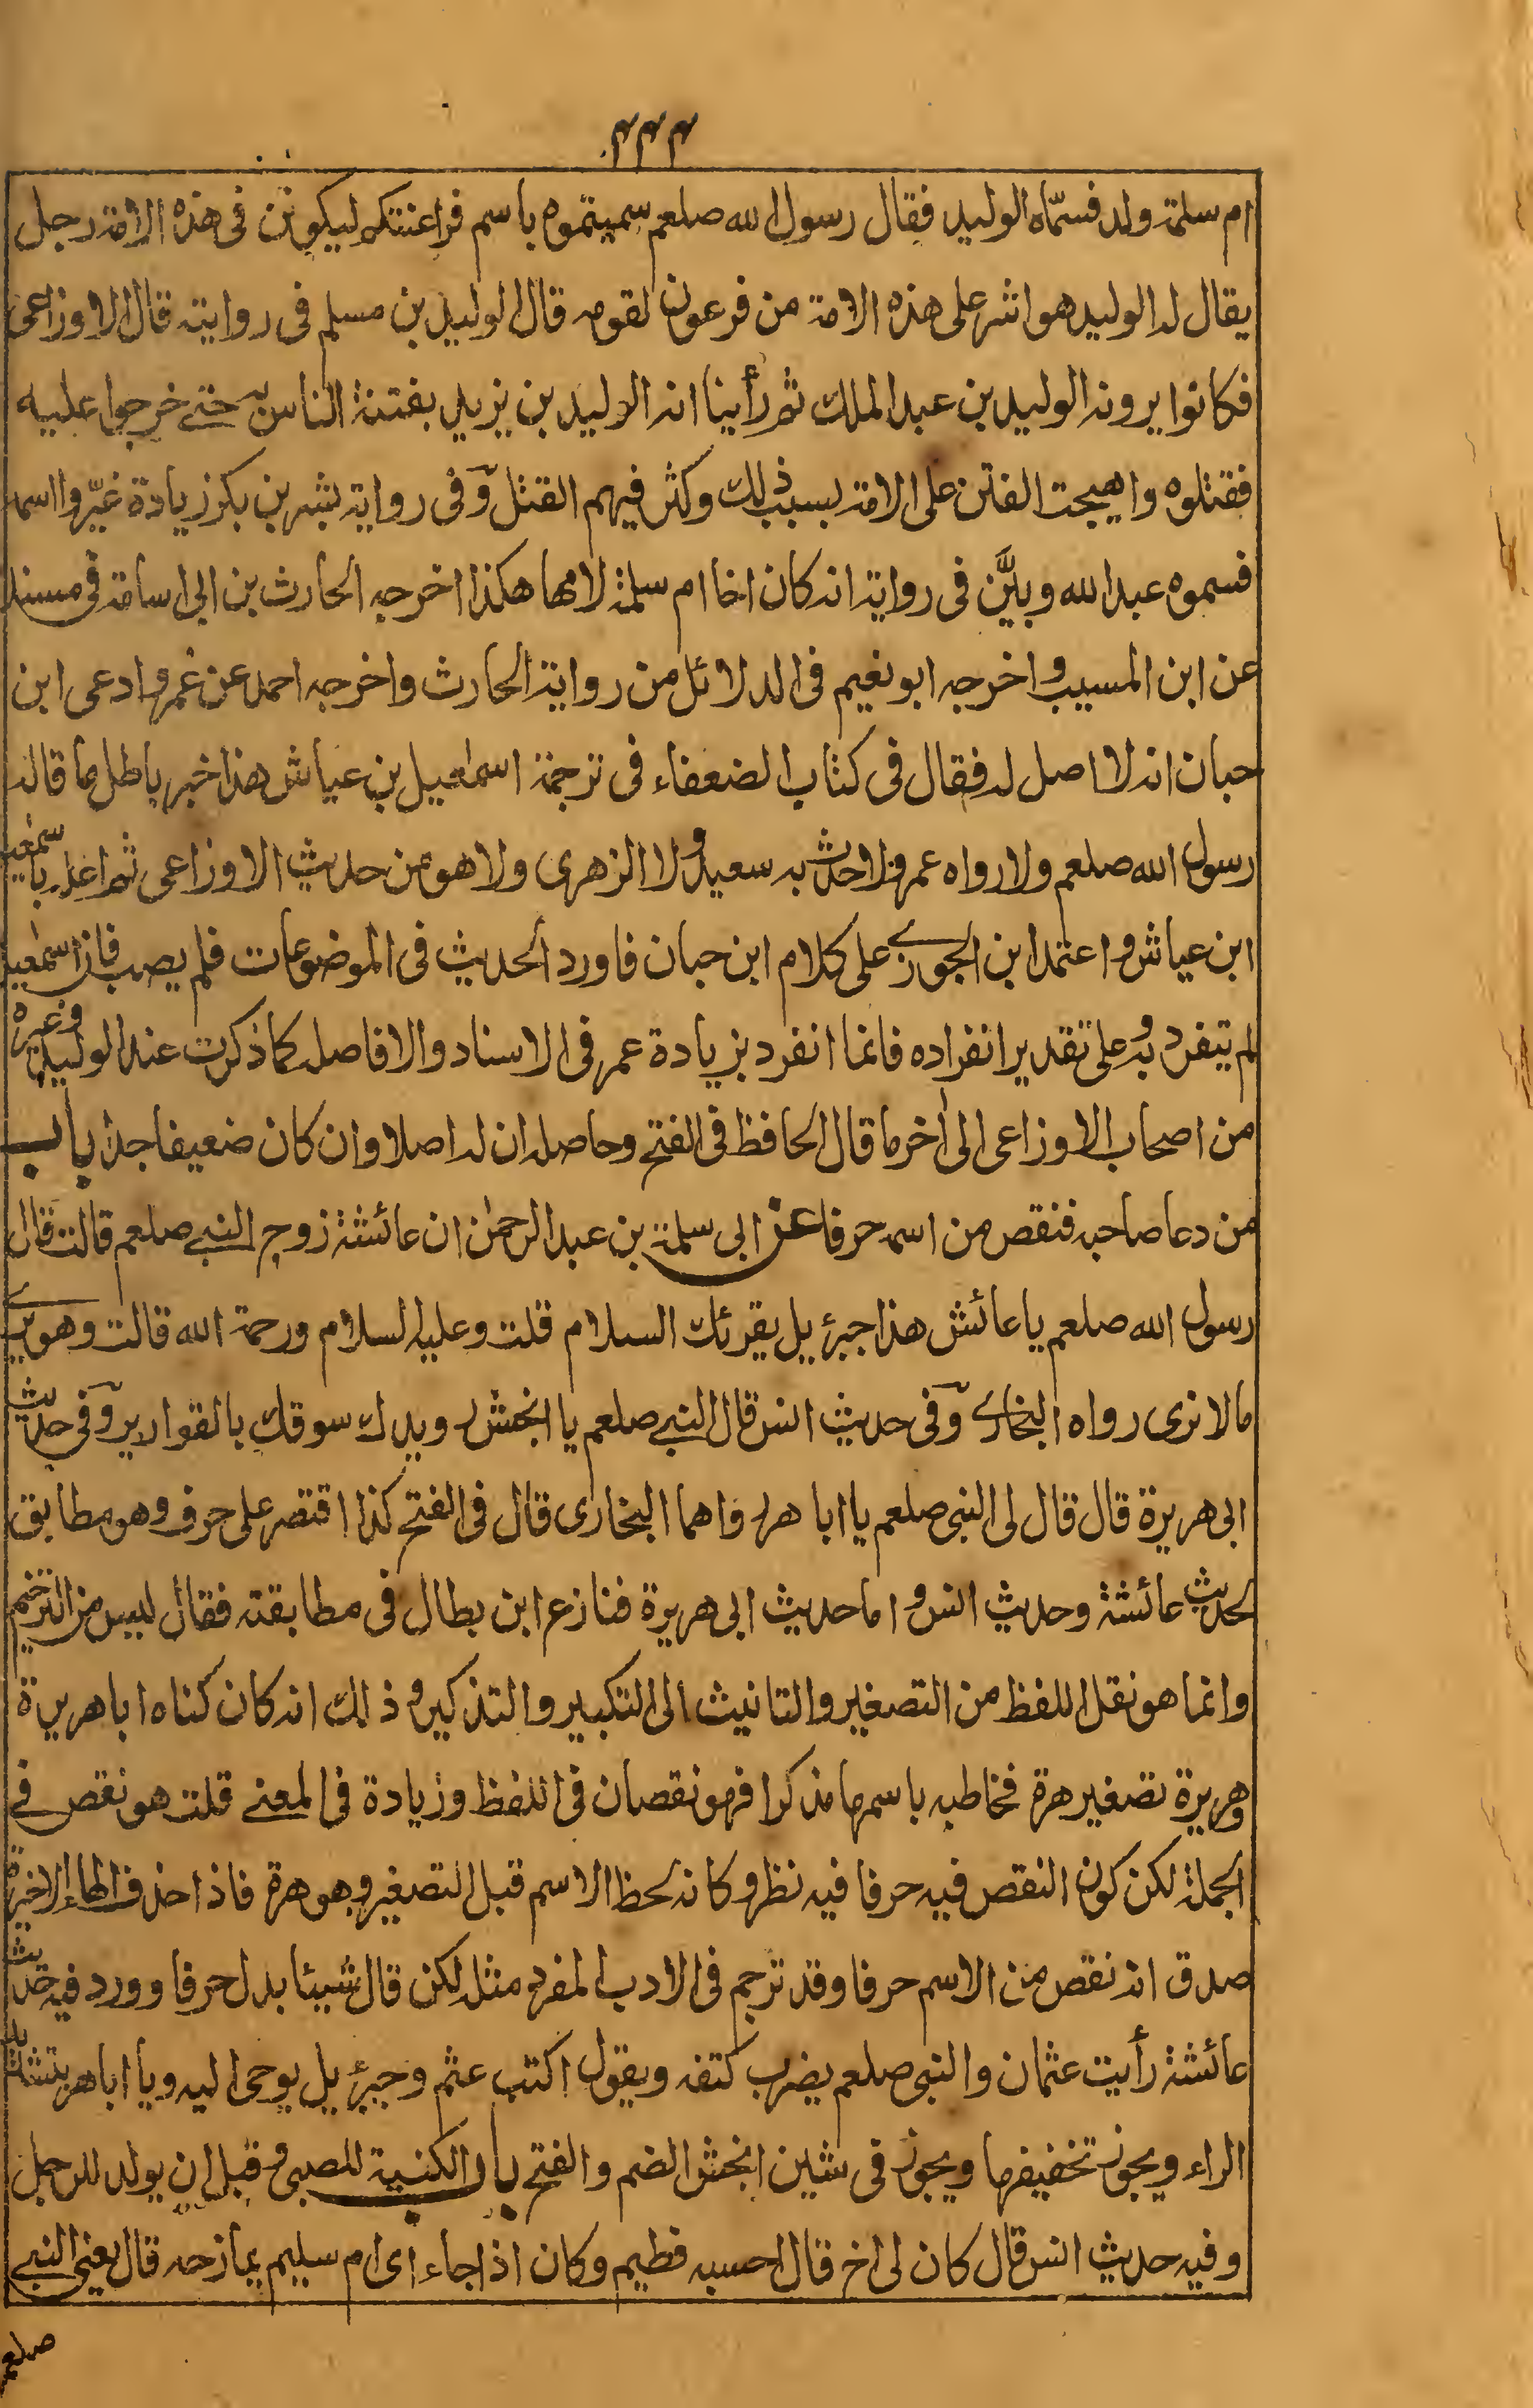 ۳۳۳
ام سلمة ولد فسمّاه الوليد فقال رسول الله صلعم سميتموه باسم فراعنتكم ليكونن فى هذه الامة رجل
يقال له الوليد هو اشر على هذه الامة من فرعون لقومه قال الوليد بن مسلم فى روايته قال الاوزاعى
فكانوا يرونه الوليد بن عبد الملك ثم رأينا انه الوليد بن يزيد بفتنة الناس به حتے خرجوا عليه
فقتلوه واهيجت الفتن على الامة بسبب ذلك وكثر فيهم القتل وفى رواية بشر بن بكر زيادة غيّروا اسمه
فسموه عبد الله وبيَّن فى رواية انه كان اخا ام سلمة لامها هكذا اخرجه الحارث بن ابى اسامة فى مسنده
عن ابن المسيب واخرجه ابو نعيم فى الدلائل من رواية الحارث واخرجه احمد عن عمر وادعى ابن
حبان انه لا اصل له فقال فى كتاب الضعفاء فى ترجمة اسمعيل بن عياش هذا خبر باطل ما قاله
رسول الله صلعم ولا رواه عمر ولا حدث به سعيد ولا الزهرى ولا هو من حديث الاوزاعى ثم اعله باسمعيل
ابن عياش واعتمد ابن الجوزے على كلام ابن حبان فاورد الحديث فى الموضوعات فلم يصب فان اسمعيل
لم يتفرد به وعلى تقدير انفراده فانما انفرد بزيادة عمر فى الاسناد والا فاصله كما ذكرت عند الوليد وغيره
من اصحاب الاوزاعى الى أخر ما قال الحافظ فى الفتح وحاصله ان له اصلا وان كان ضعيفا جدا باب
من دعا صاحبه فنقص من اسمه حرفا عن ابى سلمة بن عبد الرحمٰن ان عائشة زوج النبے صلعم قالت قال
رسول الله صلعم يا عائش هذا جبرئيل يقرئك السلام قلت وعليه السلام ورحمة الله قالت وهو يرے
مالا نرى رواه البخارے وفى حديث انس قال النبے صلعم يا انجش رويدك سوقك بالقوارير وفى حديث
ابى هريرة قال قال لى النبى صلعم يا ابا هر رواهما البخارى قال فى الفتح كذا اقتصر على حرف وهو مطابق
لحديث عائشة وحديث انس واما حديث ابى هريرة فنازع ابن بطال فى مطابقته فقال ليس من الترخيم
وانما هو نقل اللفظ من التصغير والتانيث الى التكبير والتذكير وذلك انه كان كناه ابا هريرة
وهريرة تصغير هرة فخاطبه باسمها مذكرا فهو نقصان فى اللفظ وزيادة فى المعنے قلت هو نقص فے
الجملة لكن كون النقص فيه حرفا فيه نظر وكانه لحظ الاسم قبل التصغير وهو هرة فاذا حذف الهاء الاخيرة
صدق انه نقص من الاسم حرفا وقد ترجم فى الادب المفرد مثله لكن قال شيئا بدل حرفا وورد فيه حديث
عائشة رأيت عثمان والنبى صلعم يضرب كتفه ويقول اكتب عثم وجبرئيل يوحى اليه ويا ابا هر بتشديد
الراء ويجوز تخفيفها ويجوز فى شين انجش الضم والفتح باب الكنية للصبى وقبل ان يولد للرجل
وفيه حديث انس قال كان لى اخ قال احسبه فطيم وكان اذا جاء اى ام سليم يمازحه قال يعنى النبے
صلعم